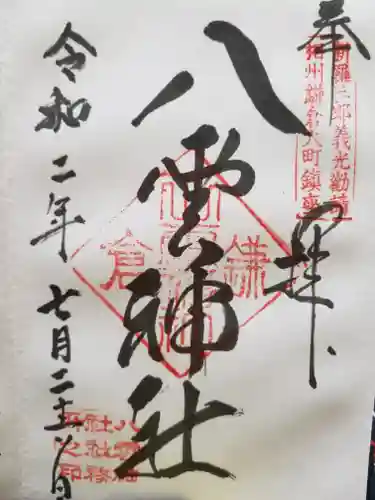 奉拝
新羅三郎義光勧請
相州鎌倉大町鎮座
八雲神社
鎌倉
令和二年
七月二十八日
八雲神
社社務
所之印